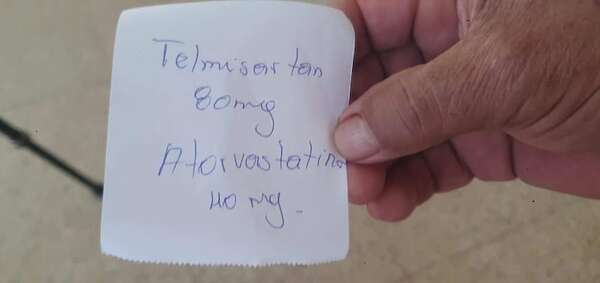 Telmisartan
80mg
Atorvastatina
40 mg.